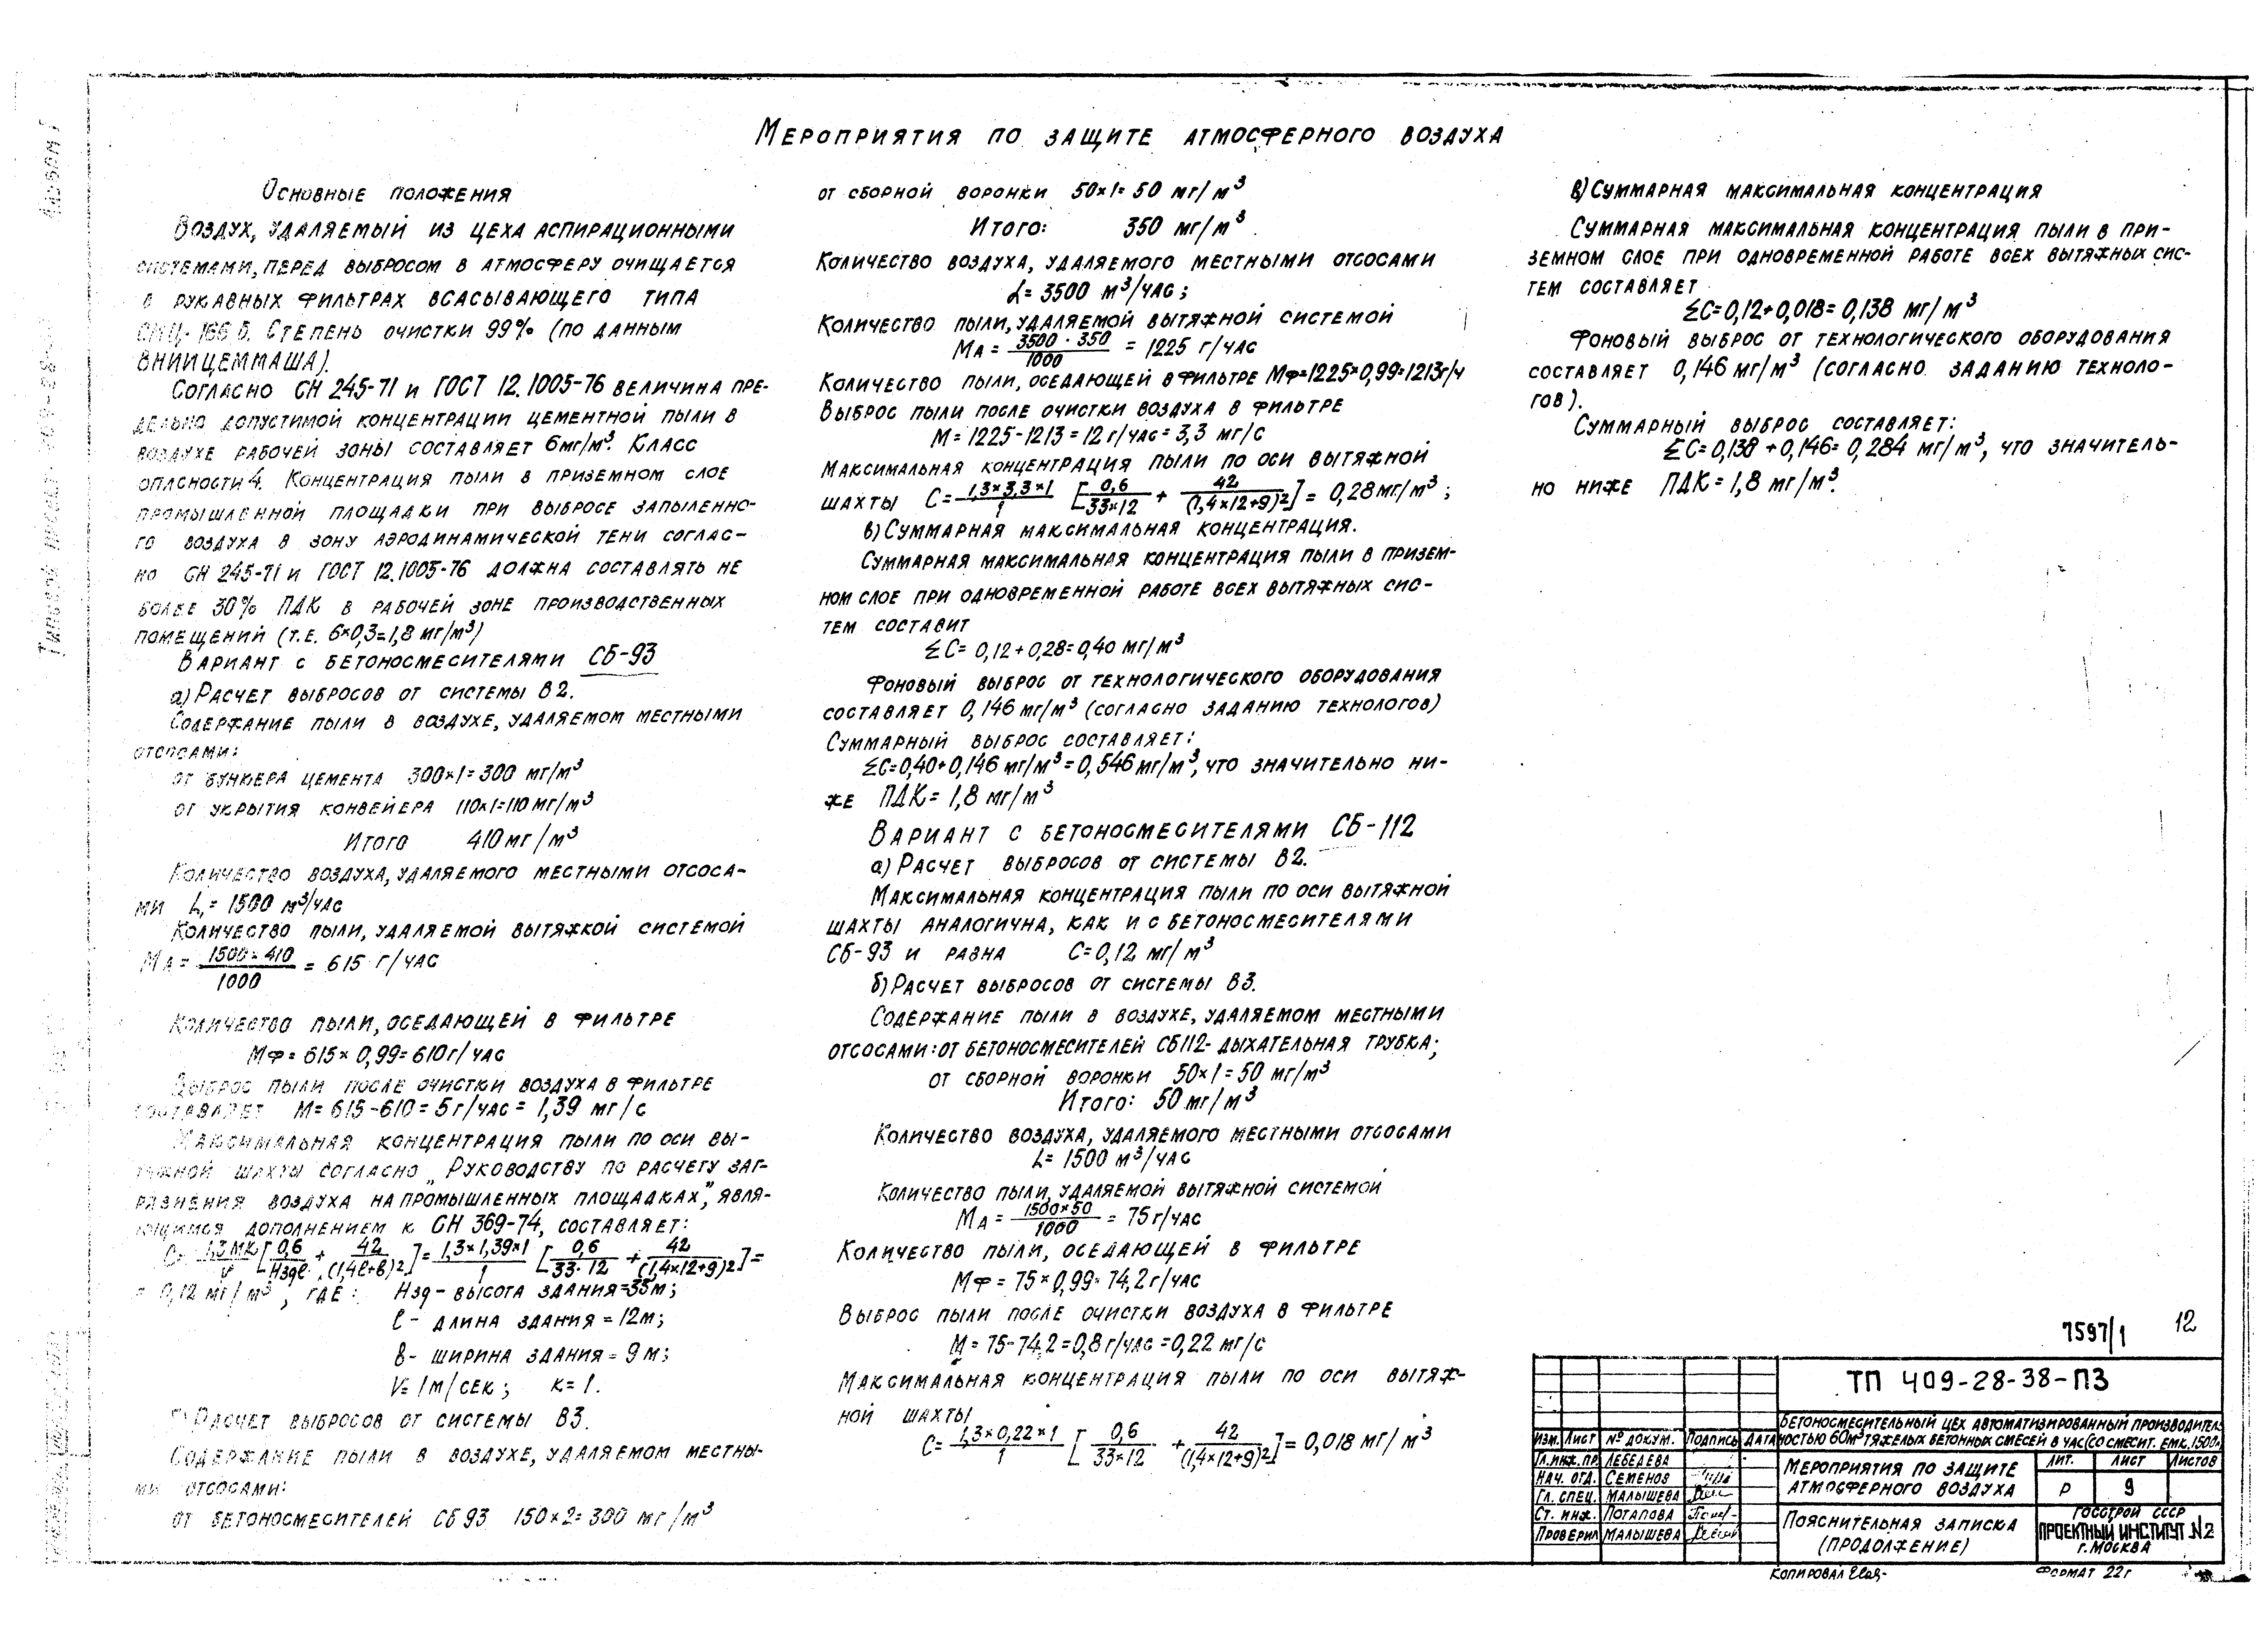 Альбом I
Типовой проект 409-28-38
Мероприятия по защите атмосферного воздуха
Основные положения
Воздух, удаляемый из цеха аспирационными
системами, перед выбросом в атмосферу очищается
в рукавных фильтрах всасывающего типа
СМЦ-166 Б. Степень очистки 99% (по данным
ВНИИЦЕММАША).
Согласно СН 245-71 и ГОСТ 12.1005-76 величина пре-
дельно допустимой концентрации цементной пыли в
воздухе рабочей зоны составляет 6мг/м³. Класс
опасности 4. Концентрация пыли в приземном слое
промышленной площадки при выбросе запыленно-
го воздуха в зону аэродинамической тени соглас-
но СН 245-71 и ГОСТ 12.1005-76 должна составлять не
более 30% ПДК в рабочей зоне производственных
помещений (т.е. 6×0,3=1,8 мг/м³)
Вариант с бетоносмесителями СБ-93
а) Расчет выбросов от системы В2.
Содержание пыли в воздухе, удаляемом местными
отсосами:
от бункера цемента 300×1=300 мг/м³
от укрытия конвейера 110×1=110 мг/м³
Итого 410 мг/м³
Количество воздуха, удаляемого местными отсоса-
ми L,= 1500 м³/час
Количество пыли, удаляемой вытяжкой системой
Mа = 1500×410 / 1000 = 615 г/час
Количество пыли, оседающей в фильтре
Mф = 615× 0,99=610 г/час
Выброс пыли после очистки воздуха в фильтре
составляет M= 615-610= 5 г/час = 1,39 мг/с
Максимальная концентрация пыли по оси вы-
тяжной шахты согласно „Руководству по расчету заг-
рязнения воздуха на промышленных площадках", явля-
ющимся дополнением к СН 369-74, составляет:
C= 1,3 MK / V [0,6 / Hздℓ + 42 / (1,4ℓ+в)²] = 1,3×1,39×1 / 1 [0,6 / 33·12 + 42 / (1,4×12+9)²] =
= 0,12 мг/м³, где: Hзд - высота здания=33м;
ℓ - длина здания = 12м;
в - ширина здания = 9 м;
V= 1м/сек; к= 1.
б) Расчет выбросов от системы В3.
Содержание пыли в воздухе, удаляемом местны-
ми отсосами:
от бетоносмесителей СБ 93 150×2=300 мг/м³
от сборной воронки 50×1= 50 мг/м³
Итого: 350 мг/м³.
Количество воздуха, удаляемого местными отсосами
L= 3500 м³/час;
Количество пыли, удаляемой вытяжной системой
Mа = 3500 · 350 / 1000 = 1225 г/час
Количество пыли, оседающей в фильтре Mф=1225×0,99=1213г/ч
Выброс пыли после очистки воздуха в фильтре
M= 1225-1213 = 12 г/час= 3,3 мг/с
Максимальная концентрация пыли по оси вытяжной
шахты C= 1,3×3,3×1 / 1 [0,6 / 33×12 + 42 / (1,4×12+9)²] = 0,28мг/м³;
в) Суммарная максимальная концентрация.
Суммарная максимальная концентрация пыли в призем-
ном слое при одновременной работе всех вытяжных сис-
тем составит
ΣC= 0,12 + 0,28=0,40 мг/м³
Фоновый выброс от технологического оборудования
составляет 0,146 мг/м³ (согласно заданию технологов)
Суммарный выброс составляет:
ΣC=0,40+0,146 мг/м³=0,546мг/м³, что значительно ни-
же ПДК= 1,8 мг/м³
Вариант с бетоносмесителями СБ-112
а) Расчет выбросов от системы В2.
Максимальная концентрация пыли по оси вытяжной
шахты аналогична, как и с бетоносмесителями
СБ-93 и равна C=0,12 мг/м³
б) Расчет выбросов от системы В3.
Содержание пыли в воздухе, удаляемом местными
отсосами: от бетоносмесителей СБ112- дыхательная трубка;
от сборной воронки 50×1=50 мг/м³
Итого: 50 мг/м³
Количество воздуха, удаляемого местными отсосами
L= 1500 м³/час
Количество пыли, удаляемой вытяжной системой
Mа = 1500×50 / 1000 = 75г/час
Количество пыли, оседающей в фильтре
Mф = 75×0,99= 74,2 г/час
Выброс пыли после очистки воздуха в фильтре
M = 75-74,2=0,8 г/час=0,22 мг/с
Максимальная концентрация пыли по оси вытяж-
ной шахты
C= 1,3×0,22×1 / 1 [0,6 / 33×12 + 42 / (1,4×12+9)²] = 0,018 мг/м³
в) Суммарная максимальная концентрация
Суммарная максимальная концентрация пыли в при-
земном слое при одновременной работе всех вытяжных сис-
тем составляет
ΣC=0,12+0,018= 0,138 мг/м³
Фоновый выброс от технологического оборудования
составляет 0,146 мг/м³ (согласно заданию техноло-
гов).
Суммарный выброс составляет:
ΣC=0,138 +0,146= 0,284 мг/м³, что значитель-
но ниже ПДК= 1,8 мг/м³.
7597/1 12
ТП 409-28-38-ПЗ
Бетоносмесительный цех автоматизированный производитель
ностью 60м³ тяжелых бетонных смесей в час (со смесит. емк. 1500л)
Изм. Лист № докум. Подпись Дата
Гл. инж. пр. Лебедева
Нач. отд. Семенов
Гл. спец. Малышева
Ст. инж. Потапова
Проверил Малышева
Мероприятия по защите
атмосферного воздуха
Лит. Лист Листов
Р 9
Пояснительная записка
(продолжение)
Госстрой СССР
ПРОЕКТНЫЙ ИНСТИТУТ №2
г. Москва
Копировал
Формат 22г